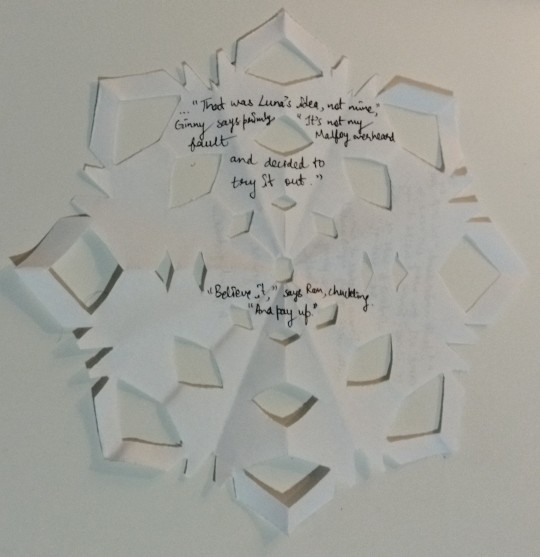 ..."That was Luna's idea, not mine,"
Ginny says primly "It's not my
fault Malfoy overheard
and decided to
try it out."
"Believe it," says Ron, chuckling.
"And pay up."